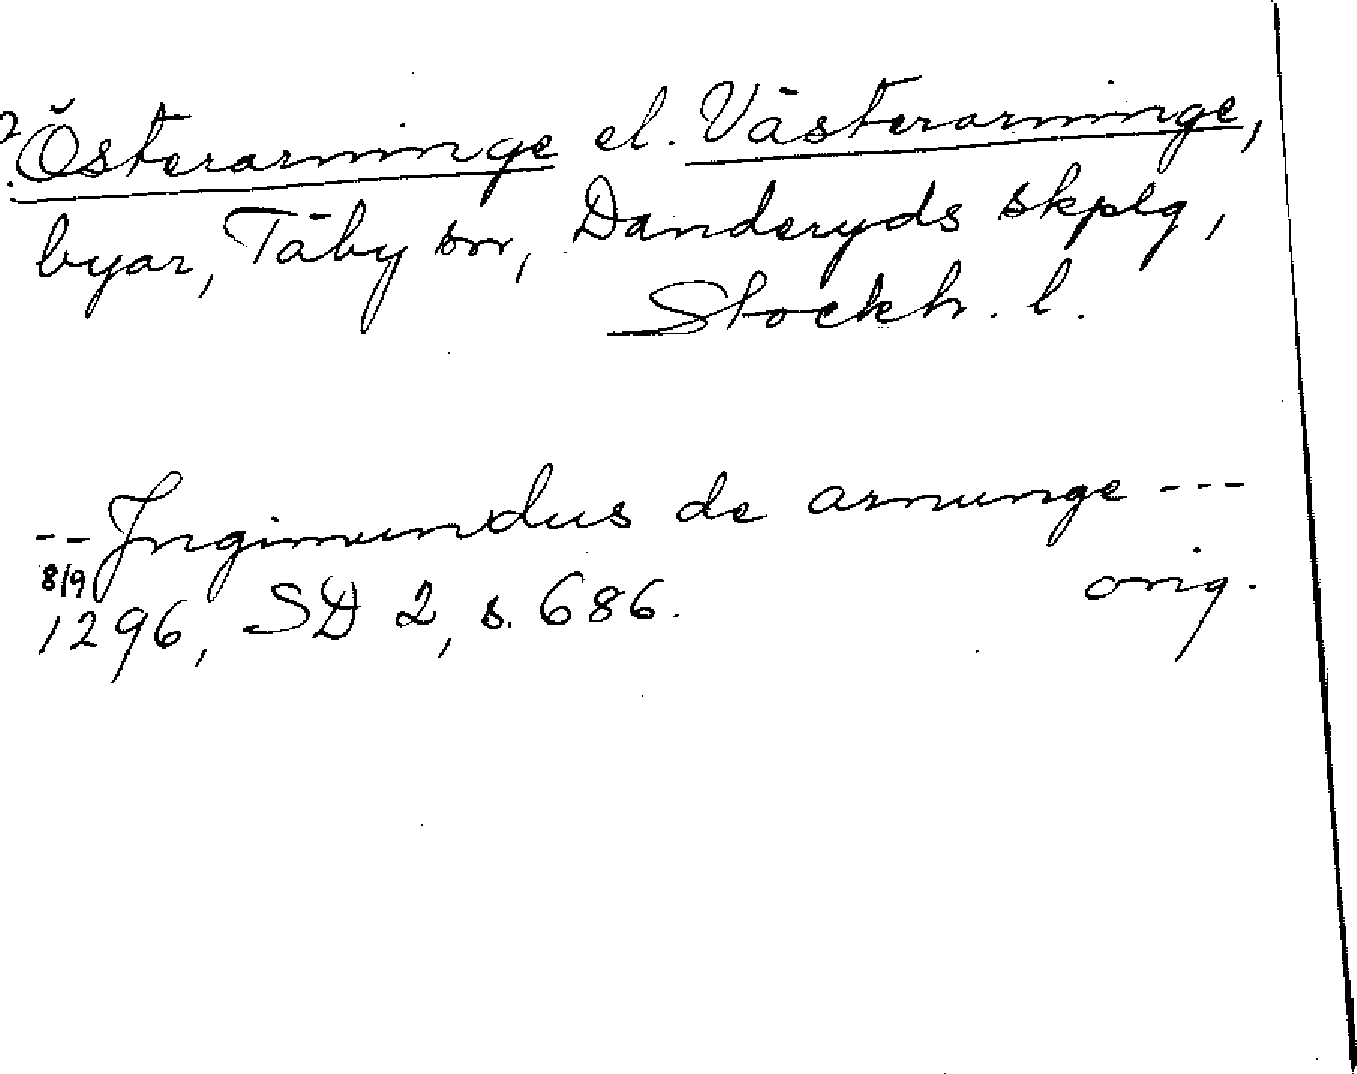 ? Österarninge el. Västerarninge,
byar, Täby sn, Danderyds skplg,
Stockh. l.
-- Ingimundus de arnunge ---
8/9 orig.
1296, SD 2, s. 686.